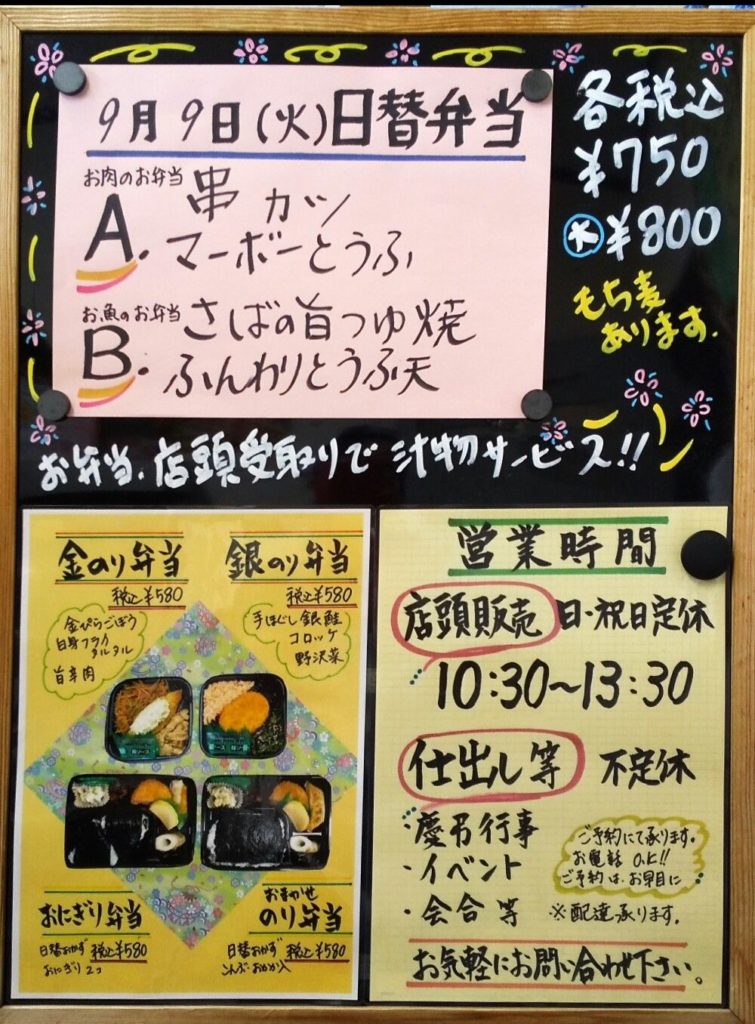 9月9日(火)日替弁当
お肉のお弁当
A. 串カツ
マーボーとうふ
お魚のお弁当
B. さばの旨つゆ焼
ふんわりとうふ天
各税込
¥750
大 ¥800
もち麦
あります.
お弁当.店頭受取りで 汁物サービス!!
金のり弁当
税込¥580
金ぴらごぼう
白身フライ
タルタル
旨辛肉
銀のり弁当
税込¥580
手ほぐし銀鮭
コロッケ
野沢菜
おにぎり弁当
日替おかず 税込¥580
おにぎり2コ
おまかせ
のり弁当
日替おかず 税込¥580
こんぶ・おかか入
営業時間
店頭販売 日・祝日定休
10:30~13:30
仕出し等 不定休
・慶弔行事
・イベント
・会合等
ご予約にて承ります。
お電話 O.K!!
ご予約は、お早目に
※配達承ります。
お気軽にお問い合わせ下さい。